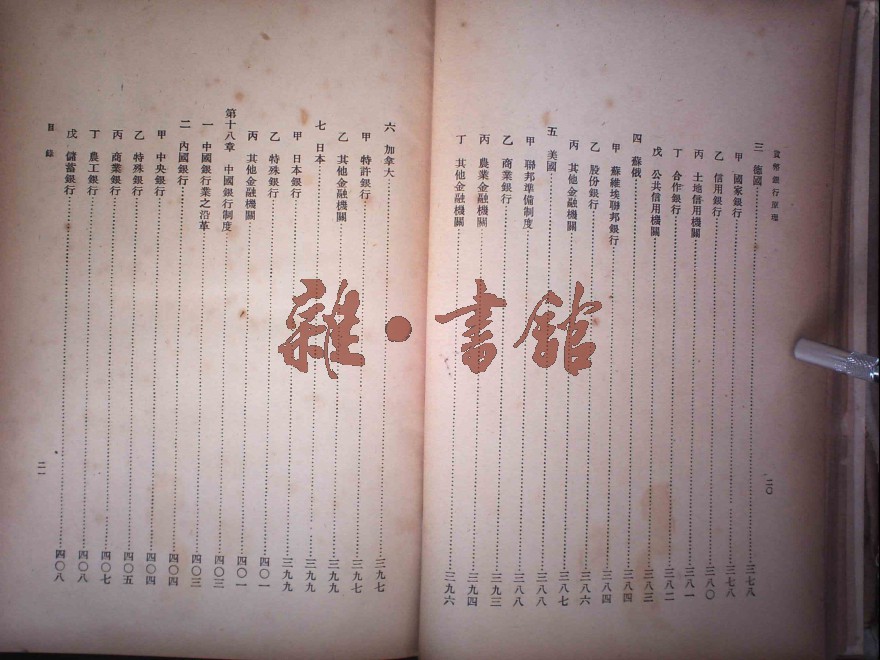 貨幣銀行原理
二〇
三 德國 三七八
甲 國家銀行 三七八
乙 信用銀行 三八〇
丙 土地信用機關 三八一
丁 合作銀行 三八二
戊 公共信用機關 三八三
四 蘇俄 三八四
甲 蘇維埃聯邦銀行 三八四
乙 股份銀行 三八六
丙 其他金融機關 三八七
五 美國 三八八
甲 聯邦準備制度 三八八
乙 商業銀行 三九三
丙 農業金融機關 三九四
丁 其他金融機關 三九六
六 加拿大 三九七
甲 特許銀行 三九七
乙 其他金融機關 三九九
七 日本 三九九
甲 日本銀行 三九九
乙 特殊銀行 四〇一
丙 其他金融機關 四〇一
第十八章 中國銀行制度 四〇三
一 中國銀行業之沿革 四〇三
二 內國銀行 四〇四
甲 中央銀行 四〇四
乙 特殊銀行 四〇五
丙 商業銀行 四〇七
丁 農工銀行 四〇八
戊 儲蓄銀行 四〇八
目錄
二一
雜·書館